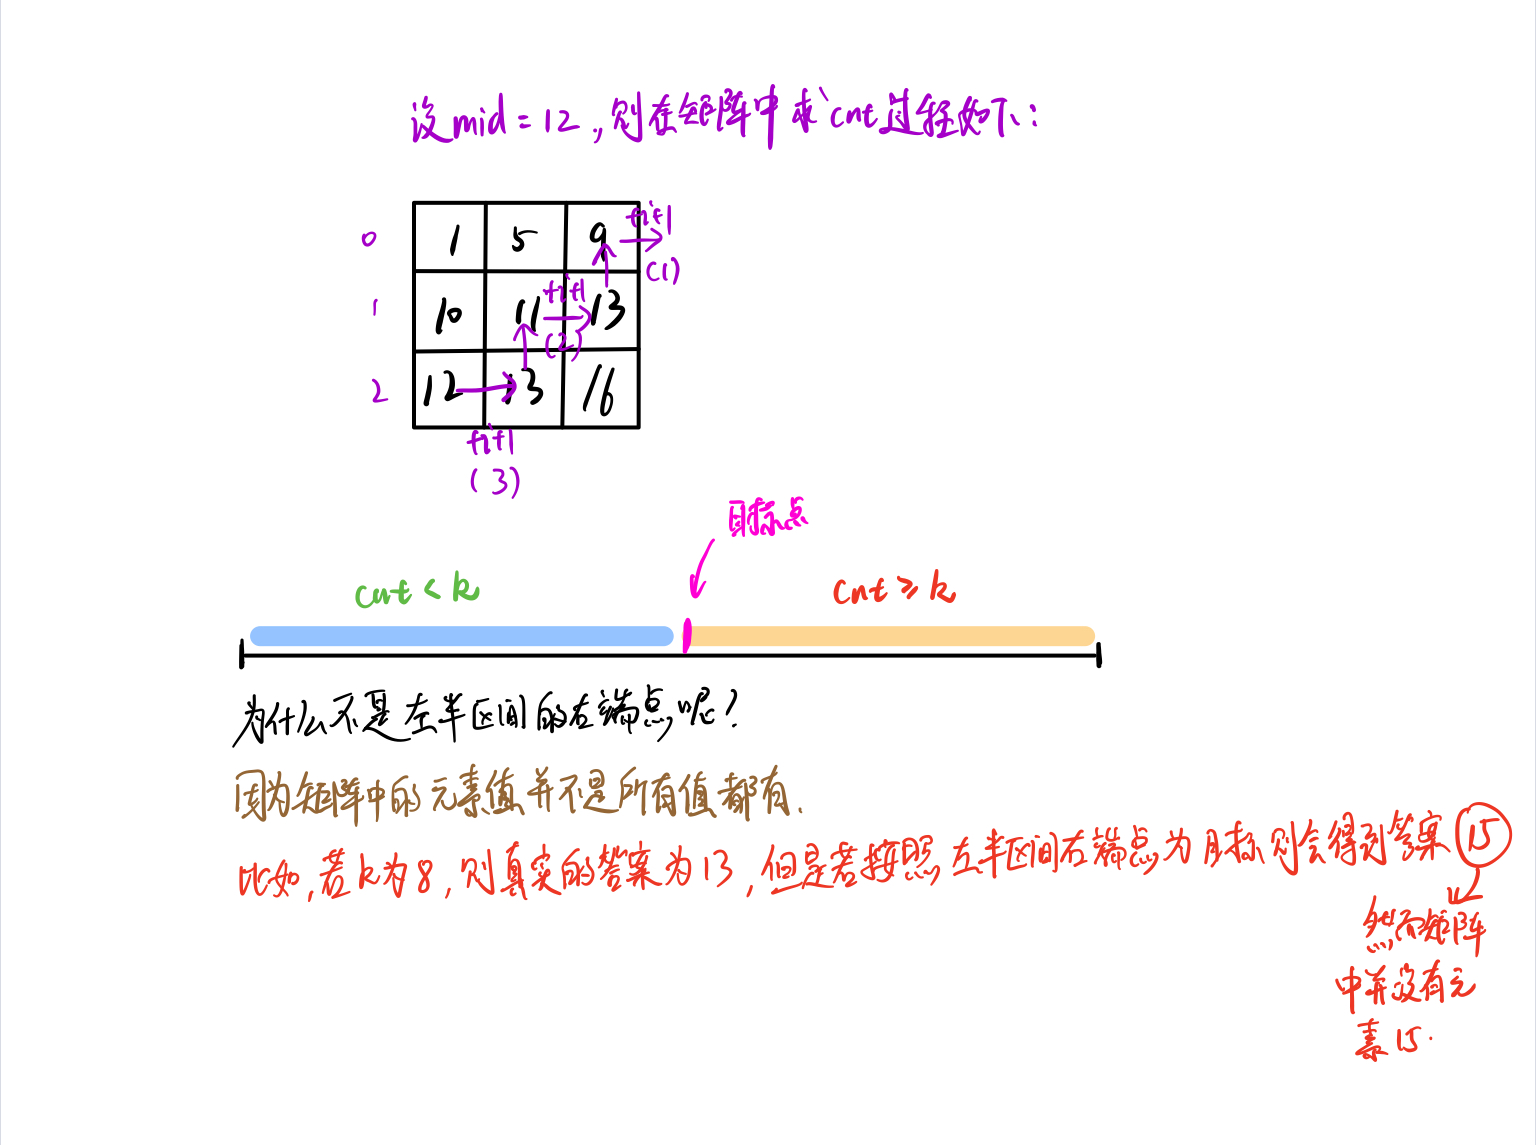 设mid=12,则在矩阵中求cnt过程如下:
0 1 5 9 +i+1
(1)
1 10 11 +i+1 13
(2)
2 12 13 16
+i+1
(3)
目标点
cnt < k cnt ≥ k
为什么不是左半区间的右端点呢?
因为矩阵中的元素值并不是所有值都有.
比如,若k为8,则真实的答案为13,但是若按照左半区间右端点为目标则会得到答案15
然而矩阵
中并没有元
素15.